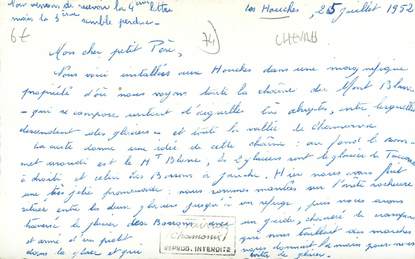 Nous venons de recevoir la 4ème lettre
mais la 3ème semble perdue.
Les Houches, 25 juillet 1952
6€
74
CHEVREB
Mon cher petit Père,
Nous voici installées aux Houches dans une magnifique
propriété d'où nous voyons toute la chaîne du Mont Blanc
- qui se compose surtout d'aiguilles très abruptes, entre lesquelles
descendent des glaciers - et toute la vallée de Chamonix.
La carte donne une idée de cette chaîne : au fond le som-
met arrondi est le Mt Blanc, les 2 glaciers sont le glacier de Taconna
à droite et celui des Bossons à gauche. Hier nous avons fait
une très jolie promenade : nous sommes montées sur l'arête rocheuse
située entre les deux glaciers jusqu'à un refuge, puis nous avons
traversé le glacier des Bossons avec un guide, chaussé de crampons
et armé d'un piolet qui nous taillait des marches
dans la glace et qui nous donnait la main pour nous
Chamonix
REPROD. INTERDITE